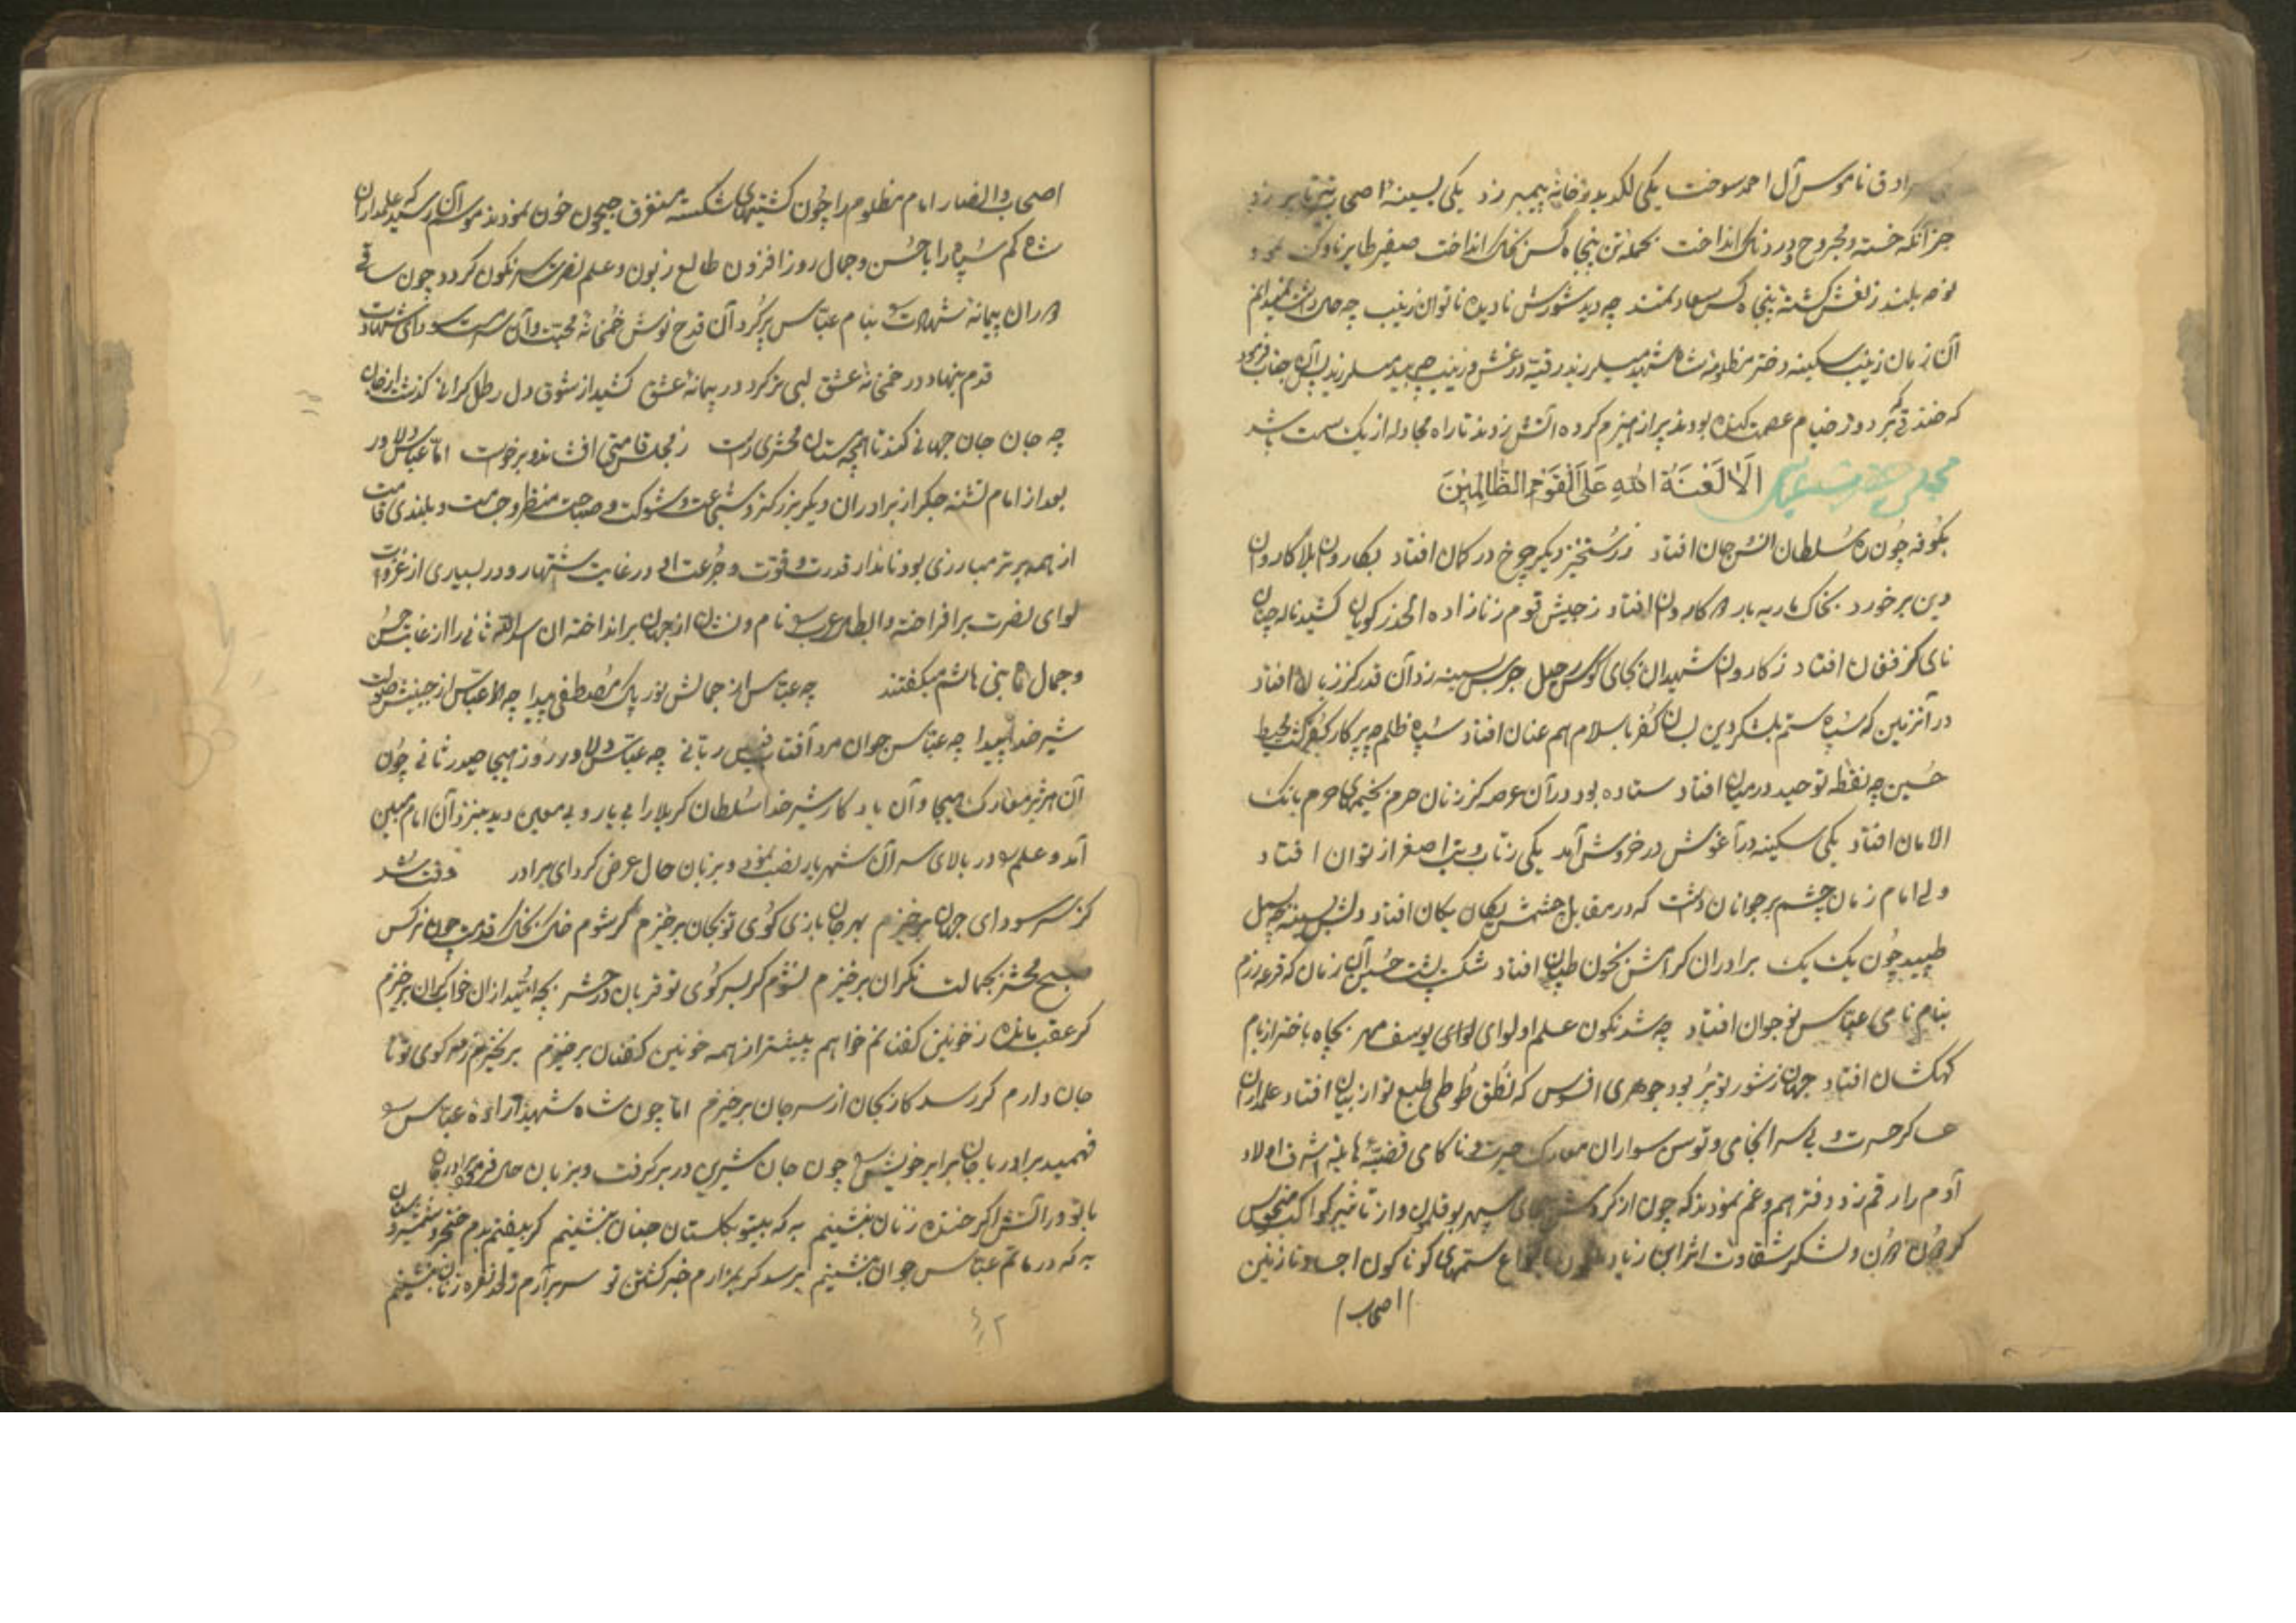 سرادق ناموس آل احمد سوخت یکی لگد بدر خانه پیمبر زد یکی بسینه اصحاب تیر زد
جز آنکه خسته و مجروح و دردناک انداخت بحمله تن پنجاه کس بخاک انداخت صفیر طایر ناوک
بلند ز نعش کشته پنجاه کس سعادتمند چه دید شورش نادیده ناتوان زینب چه حال داشت
آن زمان زینب سکینه دختر مظلومه شاه شهید میلرزید رقیه در غش و زینب چه بید میلرزید پس آن جناب فرمود
که خندقی که بر دور خیام عصمت کنده بودند پر از هیزم کرده آتش زدند تا راه مجادله از یک سمت باشد
مجلس حضرت عباس الا لعنة الله علی القوم الظالمین
بکوفه چون ره سلطان انس و جان افتاد ز رستخیز دیگر چرخ در گمان افتاد بکاروان بلا کاروان
دین برخورد بخاک ماریه بار کاروان افتاد ز جیش قوم زنازاده الحذر گویان کشید ناله چنان
نای کز فغان افتاد ز کاروان شهیدان بجای کوس رحیل جرس بسینه زد آن قدر کز زبان افتاد
در آنزمین که سپاه ستم بلشکر دین بسان کفر باسلام هم عنان افتاد سپاه ظلم چه پرکار کفر گشت محیط
حسین چه نقطه توحید در میان افتاد ستاده بود در آن عرصه کز زنان حرم بخیمه‌های حرم بانک
الامان افتاد یکی سکینه در آغوش در خروش آمد یکی ز تاب و تب اصغر از توان افتاد
ولی امام زمان چشم بر جوانان داشت که در مقابل چشمش یکان یکان افتاد دلش بسینه چه بسمل
طپید چون یک یک برادران گرامیش بخون طپان افتاد شکست پشت حسین آن زمان که قرعه رزم
بنام نامی عباس نوجوان افتاد چه شد نگون علم او لوای یوسف مهر بچاه باختر از بام
کهکشان افتاد جهان ز شور تو پر بود جوهری افسوس که نطق طوطی طبع تو از بیان افتاد علمداران
عساکر حسرت و بی سرانجامی و توسن سواران معارک حیرت و ناکامی قضیه هایله اشرف اولاد
آدم را رقم زد دفتر هم و غم نمودند که چون از گردش سپهر بوقلمون و از تاثیر کواکب منحوس
گردون دون و لشکر شقاوت اثر ابن زیاد ملعون بانواع ستمهای گوناگون اجساد نازنین
اصحاب
اصحاب و انصار امام مظلوم را چون کشتیهای شکسته مستغرق جیحون خون نمودند موسم آن رسید که علمداران
شاه کم سپاه را با حسن و جمال روز افزون طالع زبون و علم نصرت سرنگون گردد چون ساقی
دوران پیمانه شهادت بنام عباس پر کرد آن قدح نوش خمخانه محبت و آن سرمست سودای شهادت
قدم بنهاد در خمخانه عشق لبی تر کرد در پیمانه عشق کشید از شوق دل رطل گرانی گذشت از جان
چه جان جان جهانی کمند تا ز مجلس قامتی افشاند و برخواست اما عباس دلاور
بعد از امام تشنه جگر از برادران دیگر بزرگتر و شجاعت و شوکت و صباحت منظر و جسامت و بلندی قامت
از همه برتر مبارزی بود نامدار قدرت و قوت و جرعت او در غایت اشتهار و در بسیاری از غزوات
لوای نصرت برافراخته و ابطال عرب را نام و نشان از جهان برانداخته ان اسدالله ثانی را از غایت حسن
و جمال ماه بنی هاشم میگفتند چه عباس از جمالش نور پاک مصطفی پیدا چه عباس از جبینش صولت
شیر خدا پیدا چه عباس جوان مرد آفتاب فیض ربانی چه عباس دلاور روز هیجا حیدر ثانی چون
آن هژبر معارک هیجا و آن یادگار شیر خدا سلطان کربلا را بی یار و بی معین دید بنزد آن امام مبین
آمد و علم را در بالای سر آن شهریار نصب نمود و بزبان حال عرض کرد ای برادر وقت شد
کز سر سودای جهان برخیزم بهر جان بازی کوی تو بجان برخیزم گر شوم خاک بخاک قدمت چون نرگس
صبح محشر بجمالت نگران برخیزم نشوم گر بسر کوی تو قربان در حشر بچه امید از ان خواب گران برخیزم
گر عقب مانده ز خونین کفنانم خواهم پیشتر از همه خونین کفنان برخیزم برنخیزم ز سر کوی تو تا
جان دارم گر رسد کار بجان از سر جان برخیزم اما چون شاه شهید اراده عباس را
فهمید برادر با جان برابر خویش را چون جان شیرین در بر گرفت و بزبان حال فرمود برادر جان
با تو در آتش اگر خنده زنان بنشینم به که بیتو بگلستان جنان بنشینم گر بیفتم بدم خنجر و شمشیر و سنان
به که در ماتم عباس جوان بنشینم برسد گر بمزارم خبر کشتن تو سر برآرم ز لحد نعره زنان بنشینم